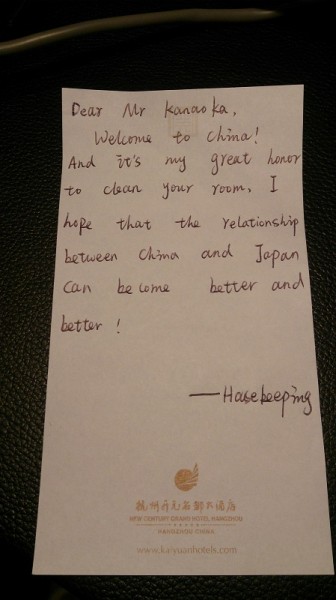 Dear Mr Kanaoka,
Welcome to China!
And it's my great honor
to clean your room, I
hope that the relationship
between China and Japan
can become better and
better !
—Hasekeeping
杭州开元名都大酒店
NEW CENTURY GRAND HOTEL HANGZHOU
HANGZHOU·CHINA
www.kaiyuanhotels.com